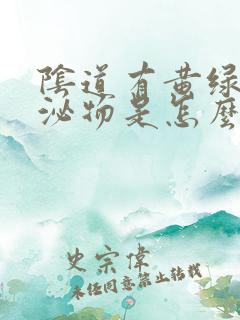 陰道有黄绿
泌物是怎麽
史宗偉
未经同意禁止转载